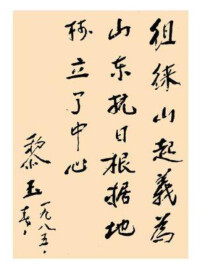 徂徕山起義為
山东抗日根据地
树立了中心
黎玉 一九八五.
春.